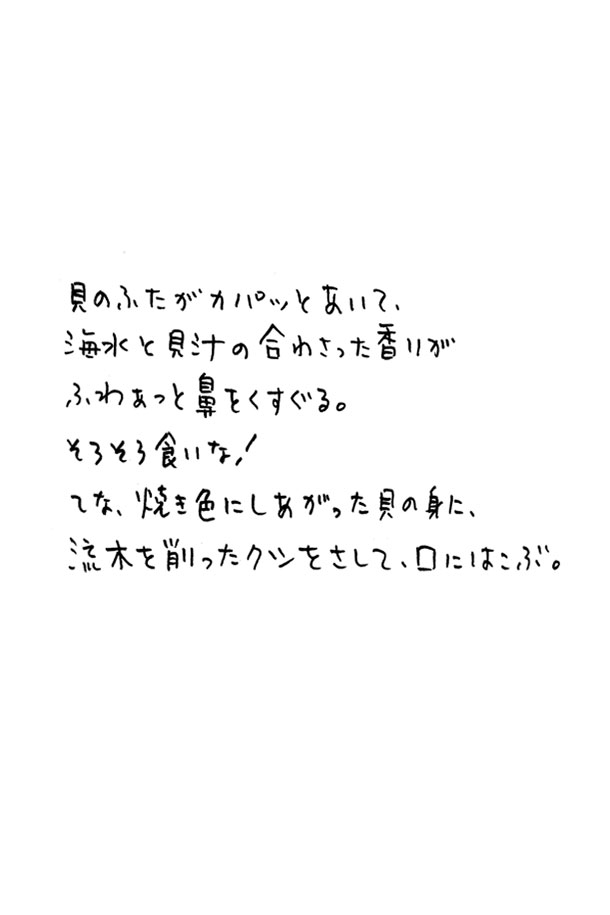 貝のふたがカパッとあいて、
海水と貝汁の合わさった香りが
ふわぁっと鼻をくすぐる。
そろそろ食いな!
てな、焼き色にしあがった貝の身に、
流木を削ったクシをさして、口にはこぶ。